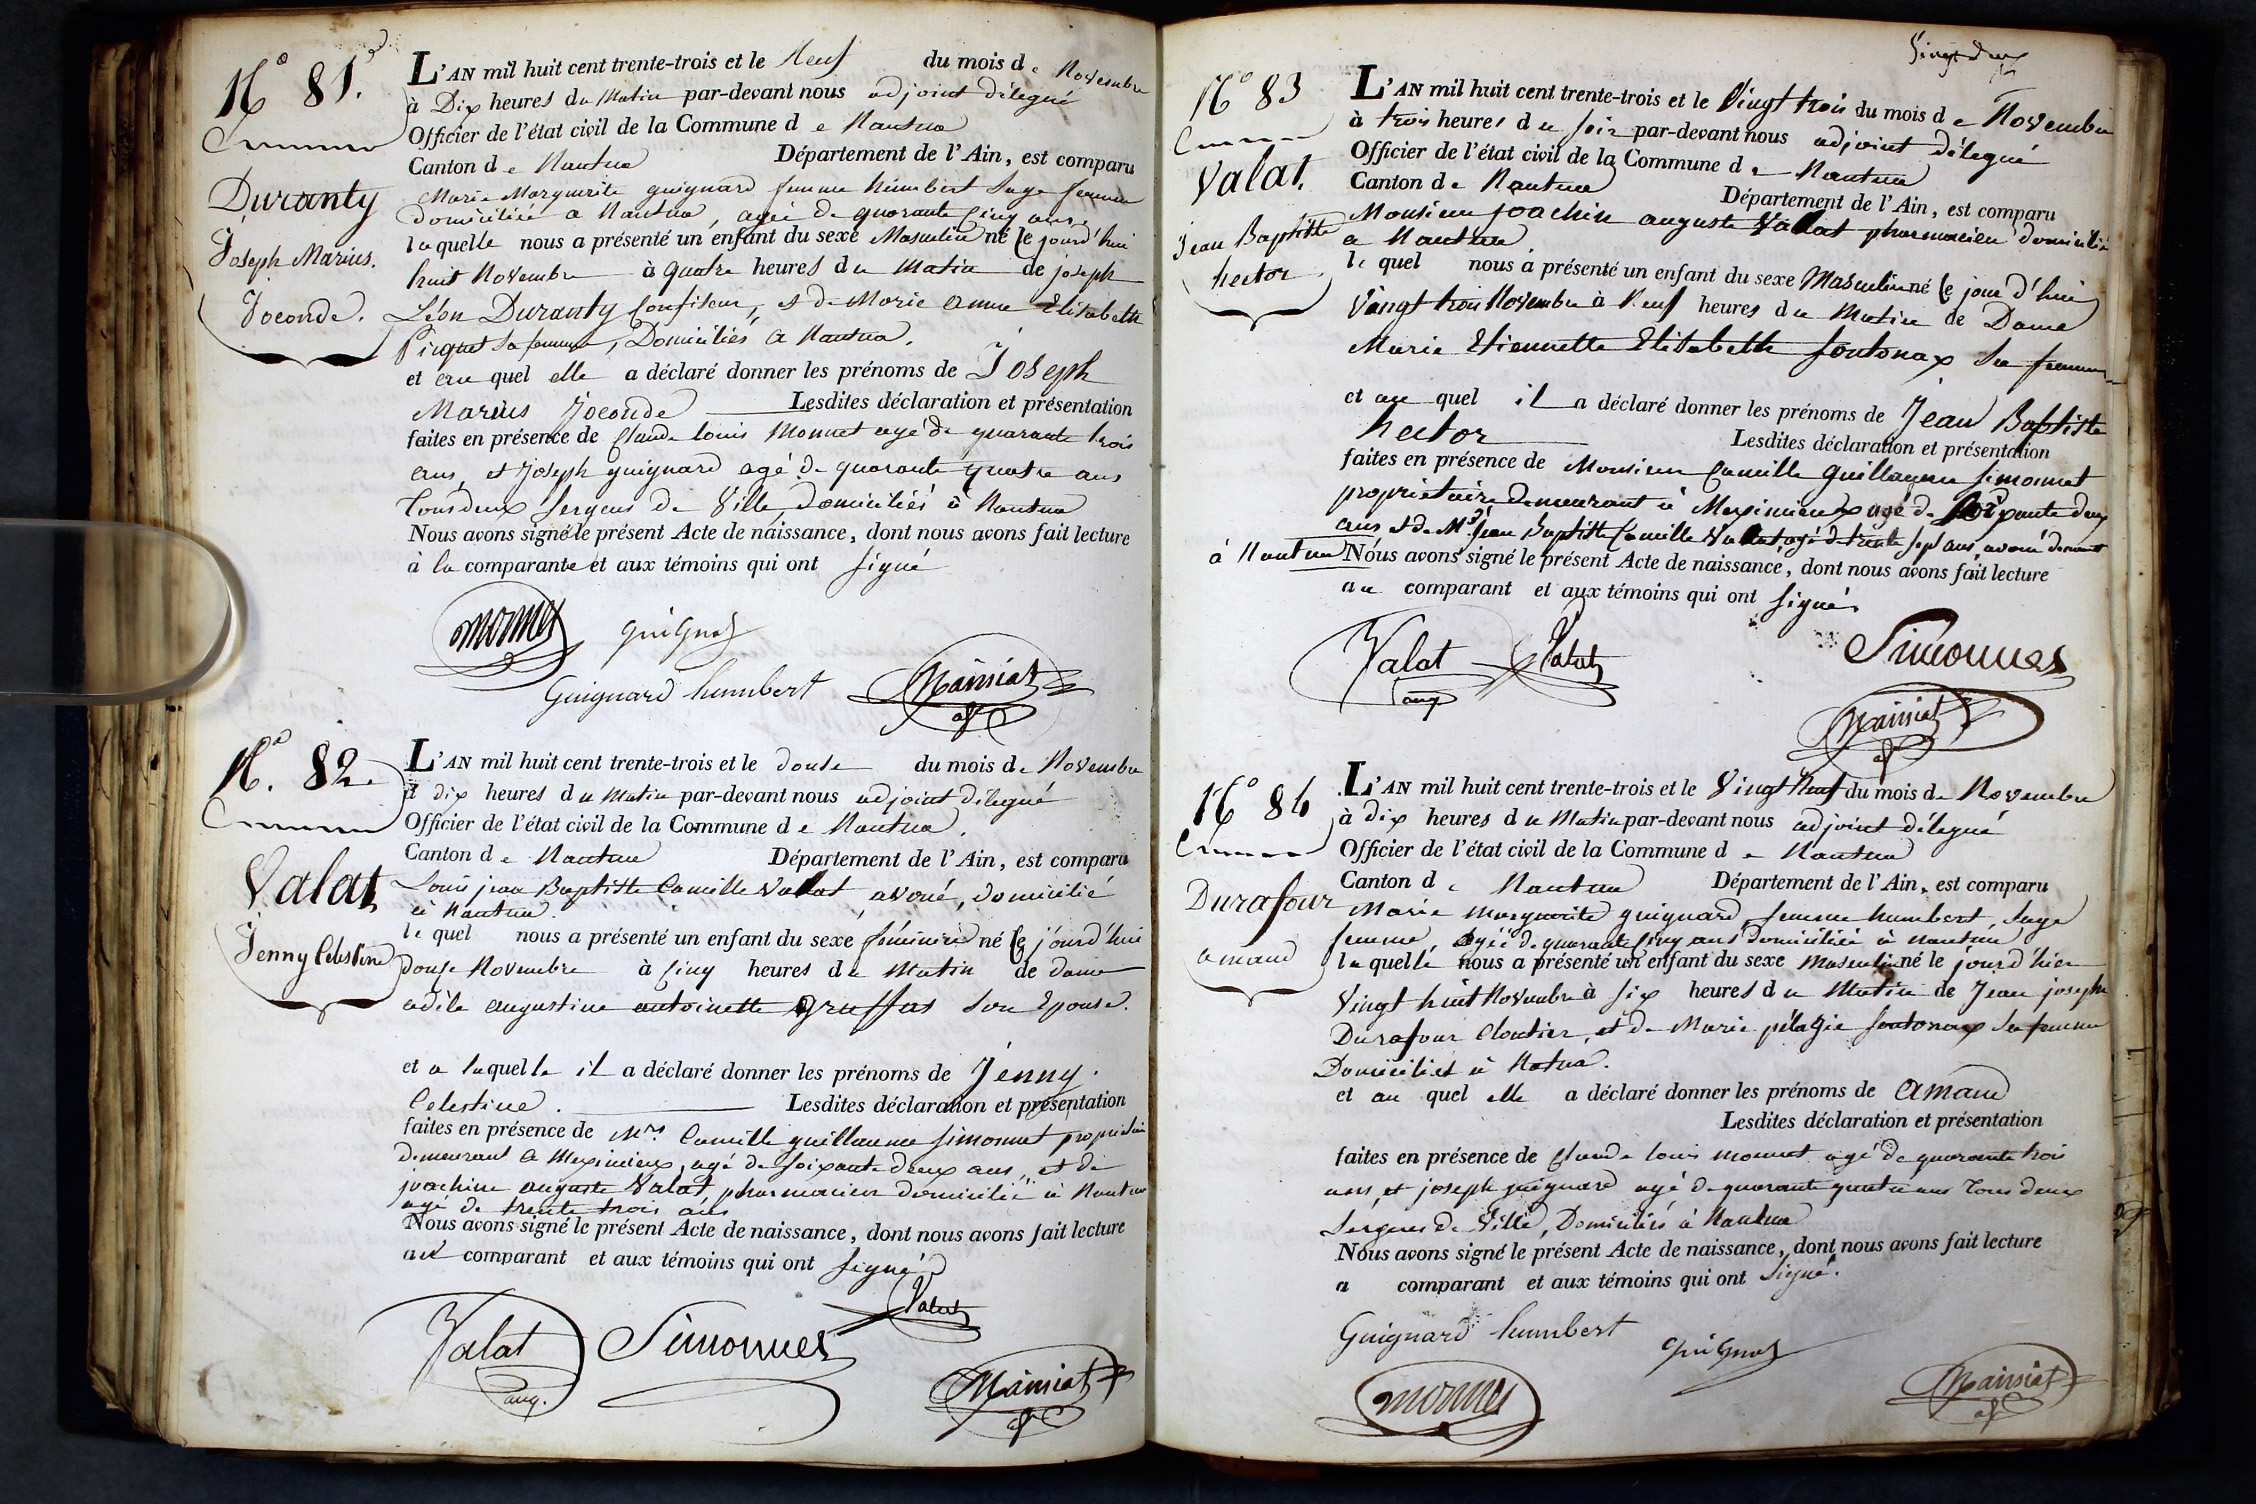 N° 81.
Duranty
Joseph Marius.
Joconde.
L'AN mil huit cent trente-trois et le Neuf du mois de Novembre
à Dix heures du Matin par-devant nous adjoint délegué
Officier de l'état civil de la Commune de Nantua
Canton de Nantua Département de l'Ain, est comparu
Marie Marguerite guignard femme humbert Sage femme
domiciliée a Nantua, agée de quarante Cinq ans.
laquelle nous a présenté un enfant du sexe Masculin né le jourd'hui
huit Novembre à quatre heures du Matin de joseph
Léon Duranty Confiseur, et de Marie anne Elisabeth
Picquet Sa femme, Domiciliés a Nantua.
et au quel elle a déclaré donner les prénoms de Joseph
Marius Joconde Lesdites déclaration et présentation
faites en présence de Claude louis Monnet agé de quarante trois
ans, et Joseph guignard agé de quarante quatre ans
Tous deux Sergens de Ville, domiciliés à Nantua
Nous avons signé le présent Acte de naissance, dont nous avons fait lecture
à la comparante et aux témoins qui ont signé
monnet guignard
Guignard humbert Mainiat
N°. 82.
Valat
Jenny Celestine
L'AN mil huit cent trente-trois et le douse du mois de Novembre
à dix heures du Matin par-devant nous adjoint délegué
Officier de l'état civil de la Commune de Nantua.
Canton de Nantua Département de l'Ain, est comparu
Louis jean Baptiste Camille Valat avoué, domicilié
à Nantua.
le quel nous a présenté un enfant du sexe féminin né le jourd'hui
douse Novembre à Cinq heures du Matin de dame
adèle augustine antoinette gruffas Son Epouse.
et a laquelle il a déclaré donner les prénoms de Jenny
Celestine. Lesdites déclaration et présentation
faites en présence de Mrs. Camille guillaume Simonnet proprietaire
demeurant a Meximieux, agé de soixante deux ans, et de
joachim auguste Valat, pharmacien domicilié à Nantua
agé de trente trois ans
Nous avons signé le présent Acte de naissance, dont nous avons fait lecture
au comparant et aux témoins qui ont signé
Valat aug. Simonnet Valat
Mainiat
Vingt deux
N° 83
Valat.
jean Baptiste
hector
L'AN mil huit cent trente-trois et le Vingt trois du mois de Novembre
à trois heures du Soir par-devant nous adjoint délegué
Officier de l'état civil de la Commune de Nantua
Canton de Nantua Département de l'Ain, est comparu
Monsieur joachim auguste Valat pharmacien domicilié
a Nantua
le quel nous a présenté un enfant du sexe Masculin né le jour d'hui
Vingt trois Novembre à Neuf heures du Matin de Dame
Marie Etiennette Elisabeth fontonax Sa femme
et au quel il a déclaré donner les prénoms de Jean Baptiste
hector Lesdites déclaration et présentation
faites en présence de Monsieur Camille guillaume Simonnet
proprietaire demeurant à Meximieux agé de Soixante deux
ans et de Mr. jean Baptiste Camille Valat agé de trente sept ans avoué demeurant
à Nantua Nous avons signé le présent Acte de naissance, dont nous avons fait lecture
au comparant et aux témoins qui ont signés
Valat aug Valat Simonnet
Mainiat
N° 84
Durafour
amand
L'AN mil huit cent trente-trois et le Vingt Neuf du mois de Novembre
à dix heures du Matin par-devant nous adjoint délegué
Officier de l'état civil de la Commune de Nantua
Canton de Nantua Département de l'Ain, est comparu
Marie marguerite guignard femme humbert, Sage
femme, agée de quarante Cinq ans domiciliée à nantua
laquelle nous a présenté un enfant du sexe masculin né le jourd'hier
Vingt huit Novembre à six heures du Matin de Jean joseph
Durafour Cloutier, et de Marie pélagie fontonax Sa femme
Domiciliés à Natua.
et au quel elle a déclaré donner les prénoms de amand
Lesdites déclaration et présentation
faites en présence de Claude louis monnet agé de quarante trois
ans et joseph guignard agé de quarante quatre ans Tous deux
Sergens de Ville, Domiciliés à Nantua
Nous avons signé le présent Acte de naissance, dont nous avons fait lecture
a comparant et aux témoins qui ont Signé.
Guignard humbert guignard
monnet Mainiat